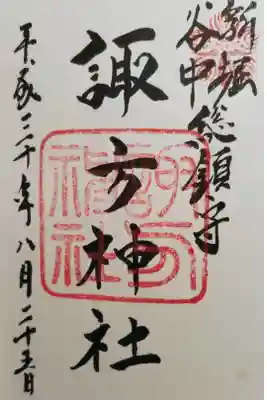 新堀
谷中総鎮守
諏方神社
平成三十年八月二十五日
諏方
神社